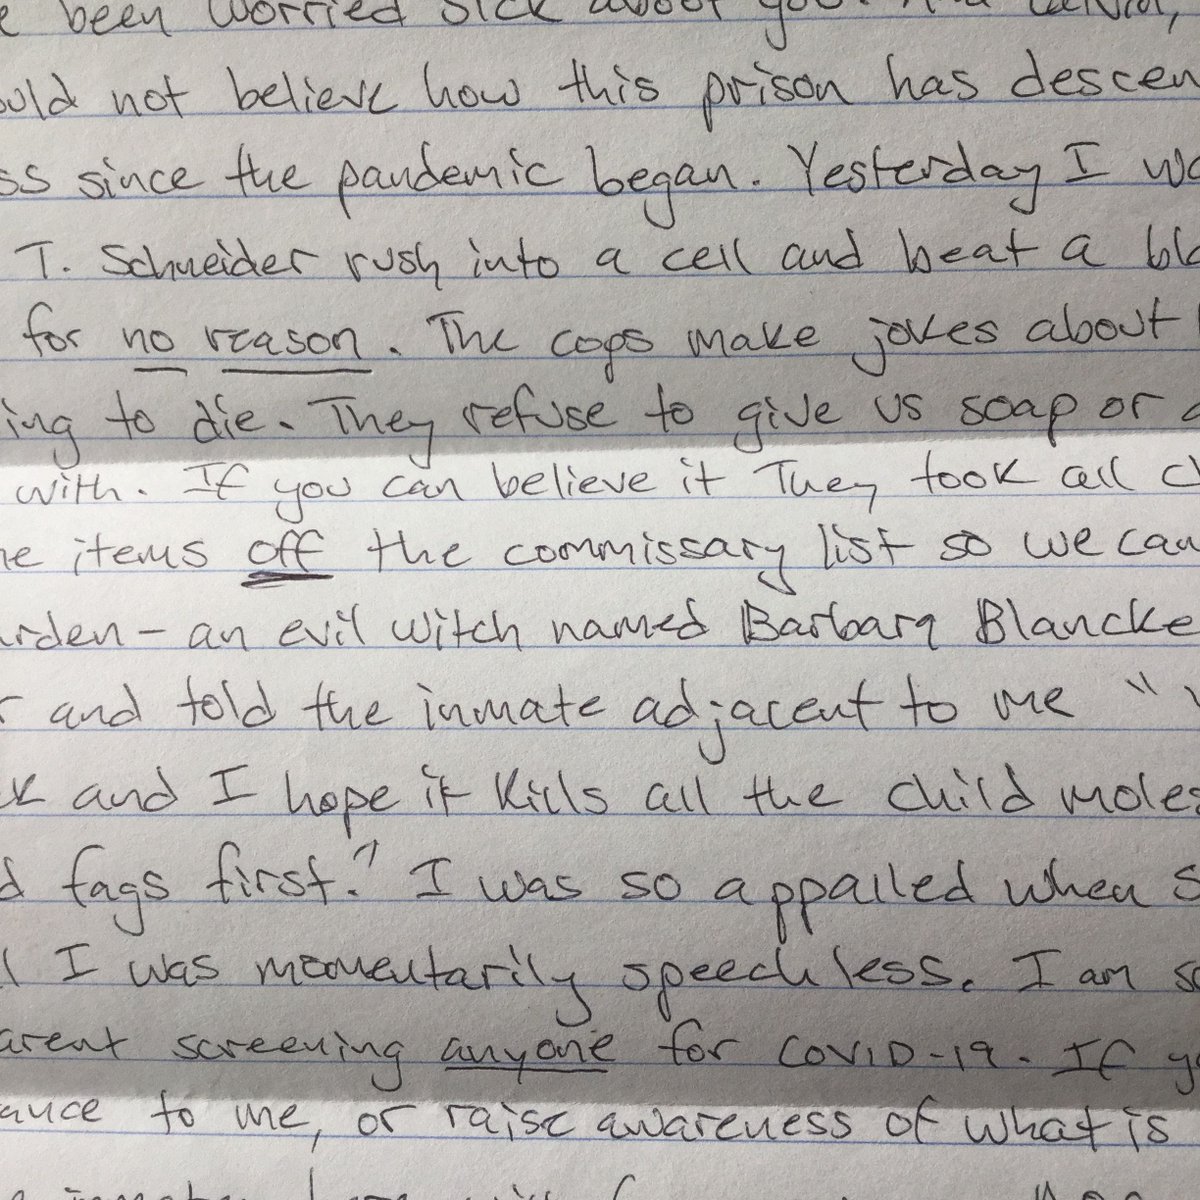 been worried sick about you. And
not believe how this prison has descen
ss since the pandemic began. Yesterday I wa
T. Schneider rush into a cell and beat a bla
for no reason. The cops make jokes about
ing to die. They refuse to give us soap or
with. If you can believe it They took all cl
ne items off the commissary list so we can
arden - an evil witch named Barbara Blancke
r and told the inmate adjacent to me "
ck and I hope it kills all the child moles
d fags first." I was so appalled when s
I was momentarily speechless. I am so
arent screening anyone for COVID-19. If y
ance to me, or raise awareness of what is